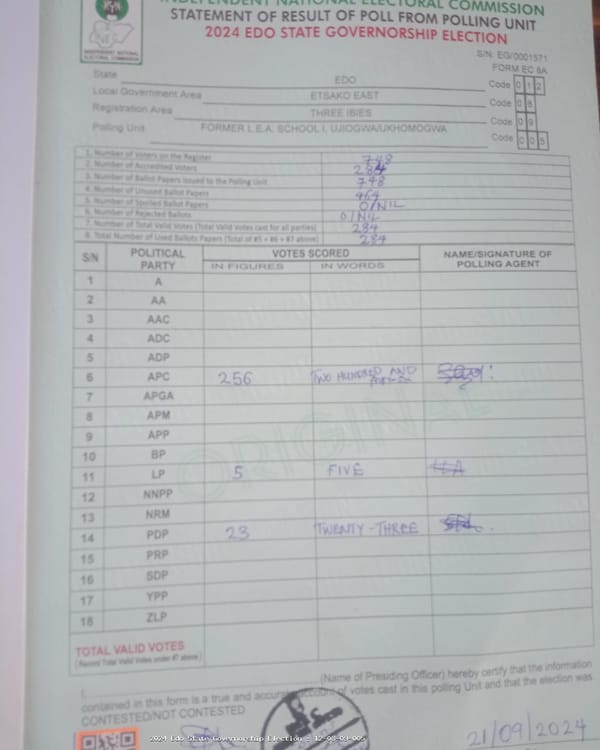 INDEPENDENT NATIONAL ELECTORAL COMMISSION
STATEMENT OF RESULT OF POLL FROM POLLING UNIT
2024 EDO STATE GOVERNORSHIP ELECTION
INDEPENDENT NATIONAL
ELECTORAL COMMISSION
S/N: EG/0001571
FORM EC 8A
State EDO Code 0 1 2
Local Government Area ETSAKO EAST Code 0 8
Registration Area THREE IBIES Code 0 9
Polling Unit FORMER L.E.A. SCHOOL I, UJIOGWA/UKHOMOGWA Code 0 0 5
1. Number of Voters on the Register 748
2. Number of Accredited Voters 284
3. Number of Ballot Papers Issued to the Polling Unit 748
4. Number of Unused Ballot Papers 464
5. Number of Spoiled Ballot Papers 0/NIL
6. Number of Rejected Ballots 0/NIL
7. Number of Total Valid Votes (Total Valid Votes cast for all parties) 284
8. Total Number of Used Ballots Papers (Total of #5 + #6 + #7 above) 284
S/N POLITICAL PARTY VOTES SCORED NAME/SIGNATURE OF POLLING AGENT
IN FIGURES IN WORDS
1 A
2 AA
3 AAC
4 ADC
5 ADP
6 APC 256 TWO HUNDRED AND
7 APGA
8 APM
9 APP
10 BP
11 LP 5 FIVE
12 NNPP
13 NRM
14 PDP 23 TWENTY-THREE
15 PRP
16 SDP
17 YPP
18 ZLP
ORIGINAL
TOTAL VALID VOTES
(Record Total Valid Votes under #7 above)
I, (Name of Presiding Officer) hereby certify that the information
contained in this form is a true and accurate account of votes cast in this polling Unit and that the election was
CONTESTED/NOT CONTESTED
21/09/2024
2024 Edo State Governorship Election - 12-08-09-005